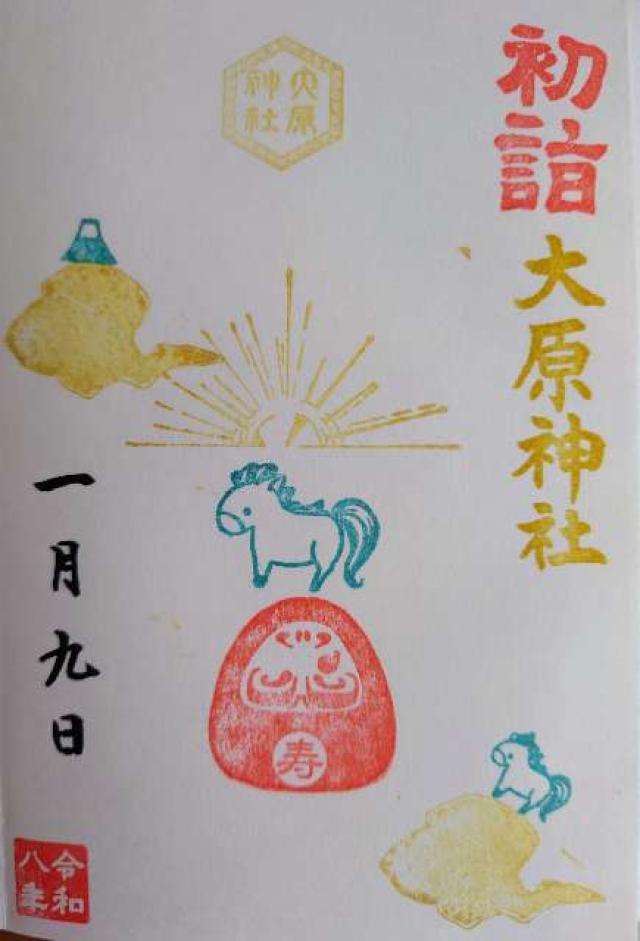 初詣
大原神社
大原
神社
寿
一月九日
令和
八年